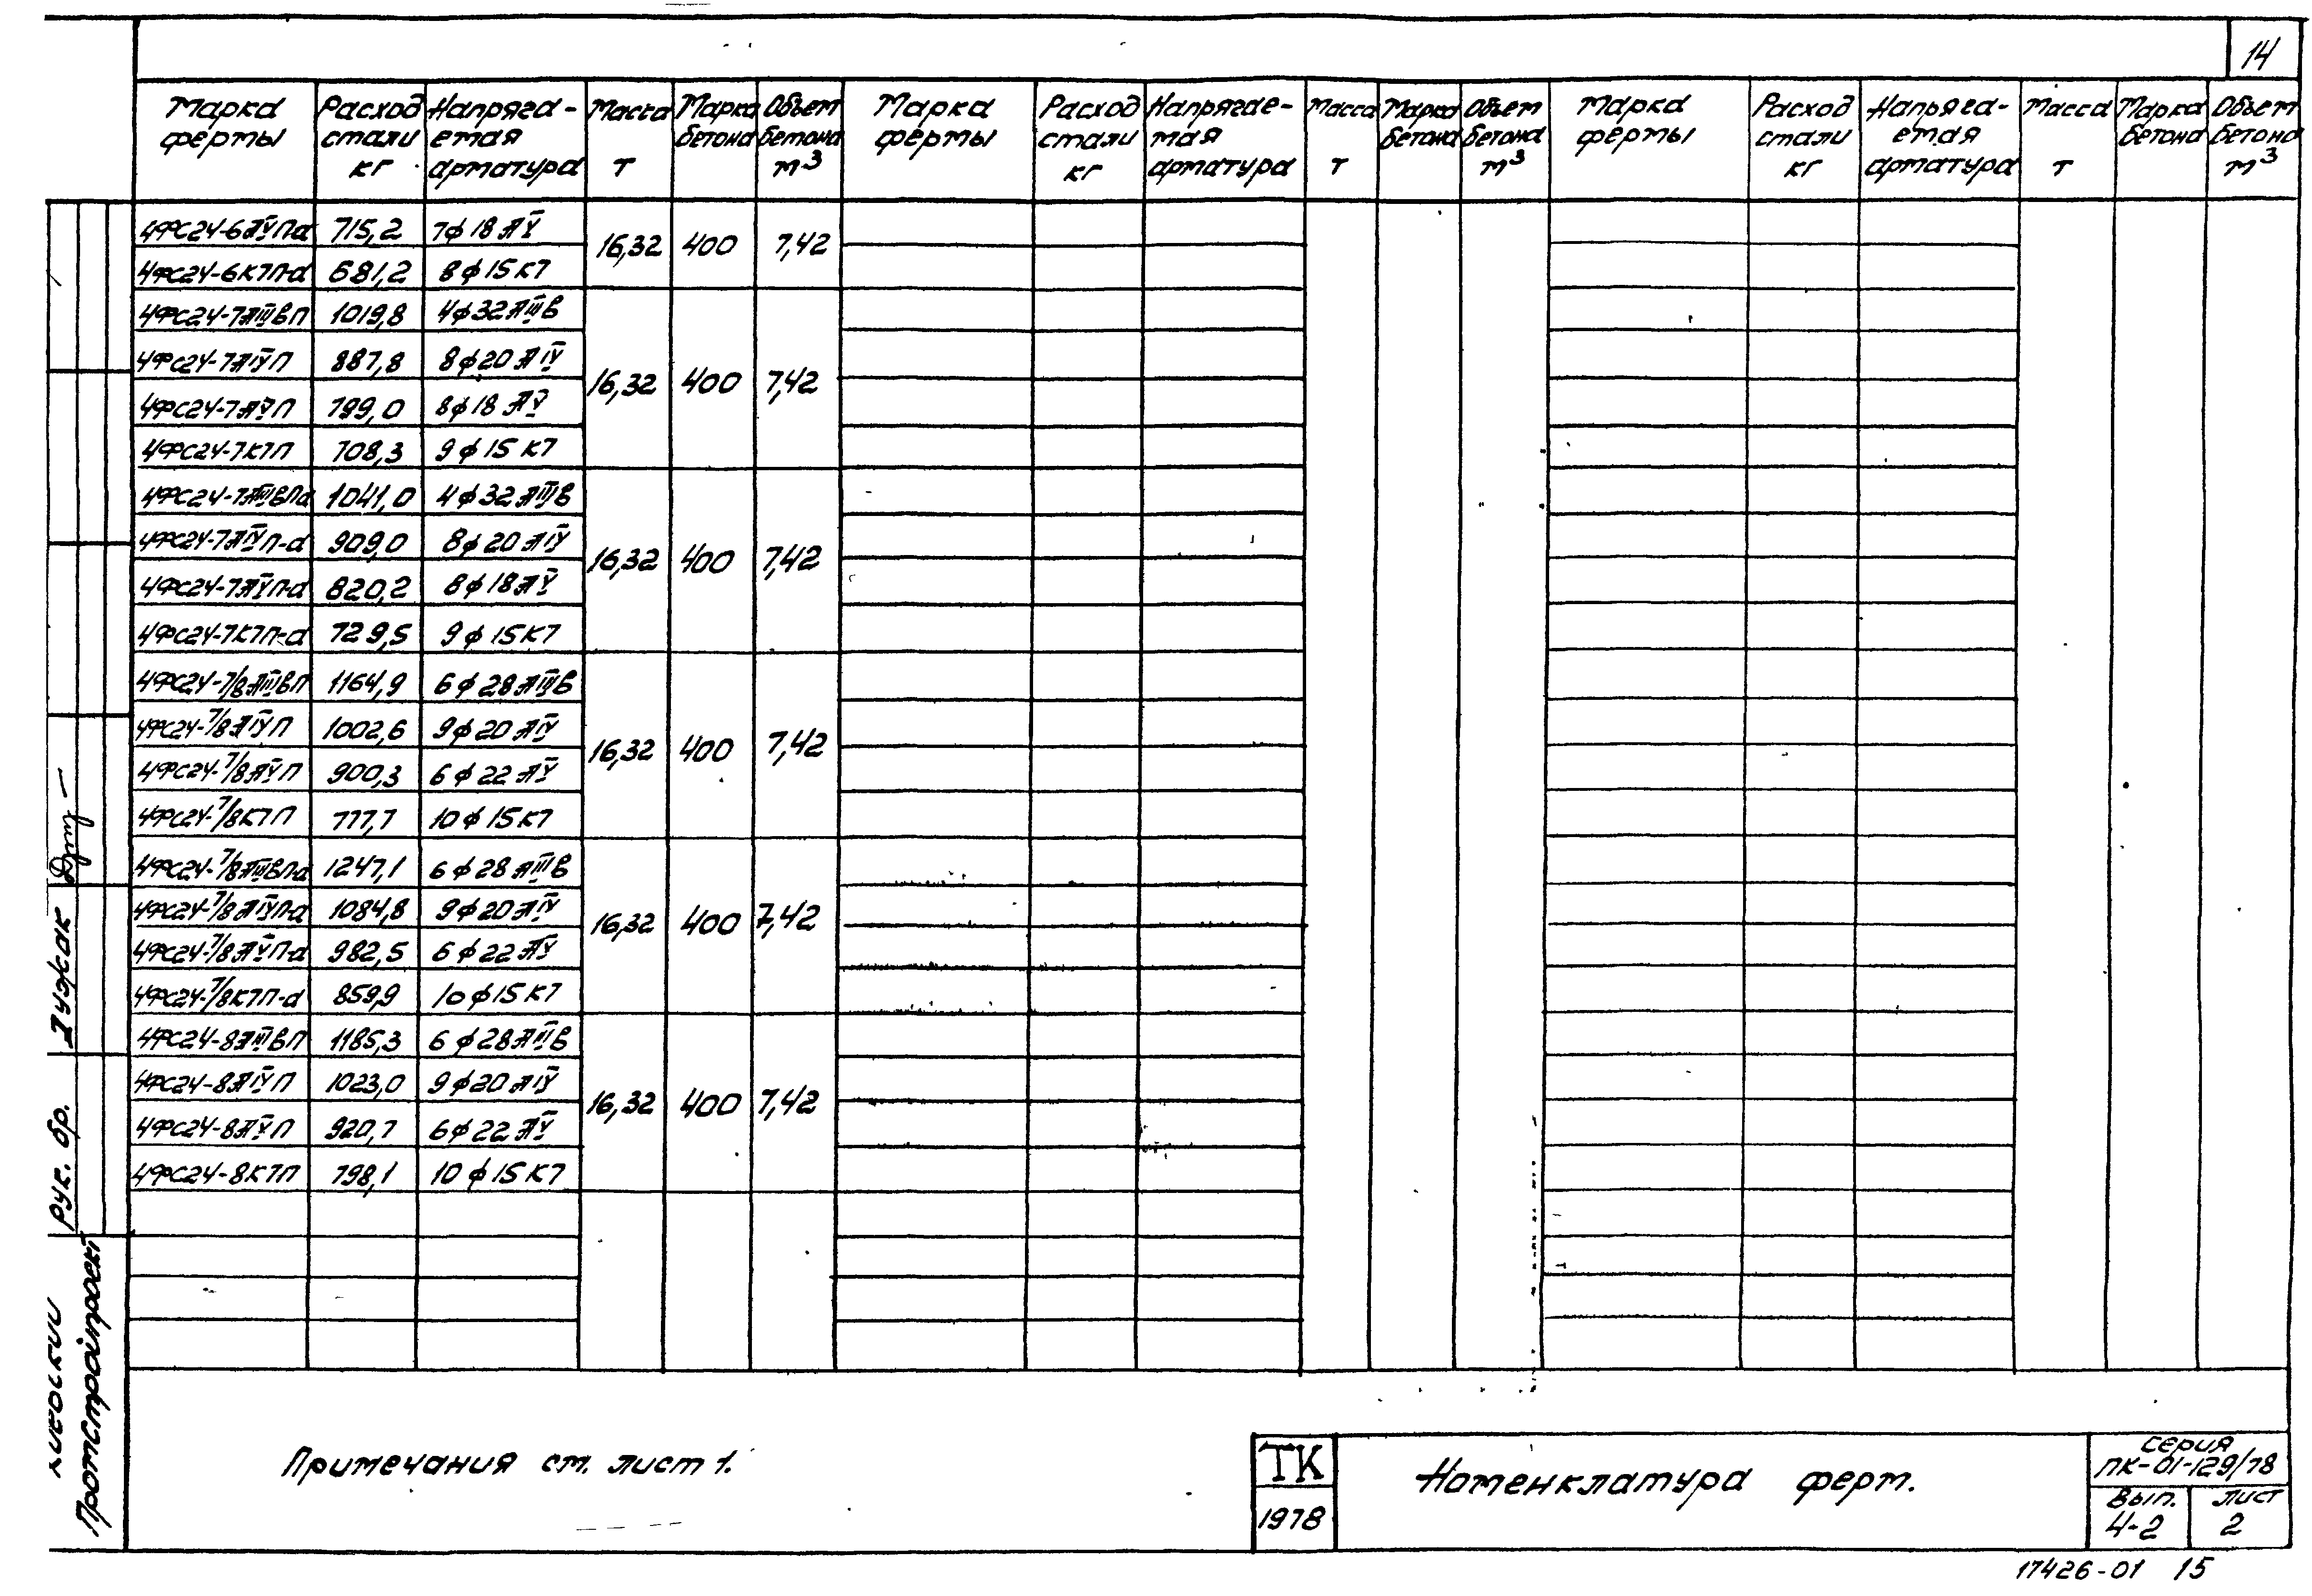 14
Марка фермы | Расход стали кг | Напрягаемая арматура | Масса т | Марка бетона | Объем бетона м³ | Марка фермы | Расход стали кг | Напрягаемая арматура | Масса т | Марка бетона | Объем бетона м³ | Марка фермы | Расход стали кг | Напрягаемая арматура | Масса т | Марка бетона | Объем бетона м³
4ФС24-6АVП-а 715,2 7ф18АV 16,32 400 7,42
4ФС24-6К7П-а 681,2 8ф15К7
4ФС24-7АIIIвП 1019,8 4ф32АIIIв
4ФС24-7АIVП 887,8 8ф20АIV 16,32 400 7,42
4ФС24-7АVП 799,0 8ф18АV
4ФС24-7К7П 708,3 9ф15К7
4ФС24-7АIIIвПа 1041,0 4ф32АIIIв
4ФС24-7АIVП-а 909,0 8ф20АIV 16,32 400 7,42
4ФС24-7АVП-а 820,2 8ф18АV
4ФС24-7К7П-а 729,5 9ф15К7
4ФС24-7/8АIIIвП 1164,9 6ф28АIIIв
4ФС24-7/8АIVП 1002,6 9ф20АIV 16,32 400 7,42
4ФС24-7/8АVП 900,3 6ф22АV
4ФС24-7/8К7П 777,7 10ф15К7
4ФС24-7/8АIIIвП-а 1247,1 6ф28АIIIв
4ФС24-7/8АIVП-а 1084,8 9ф20АIV 16,32 400 7,42
4ФС24-7/8АVП-а 982,5 6ф22АV
4ФС24-7/8К7П-а 859,9 10ф15К7
4ФС24-8АIIIвП 1185,3 6ф28АIIIв
4ФС24-8АIVП 1023,0 9ф20АIV 16,32 400 7,42
4ФС24-8АVП 920,7 6ф22АV
4ФС24-8К7П 798,1 10ф15К7
Киевский
Промстройпроект
рук. бр.
Примечания см. лист 1.
ТК
1978
Номенклатура ферм.
серия
ПК-01-129/78
Вып. лист
4-2 2
17426-01 15